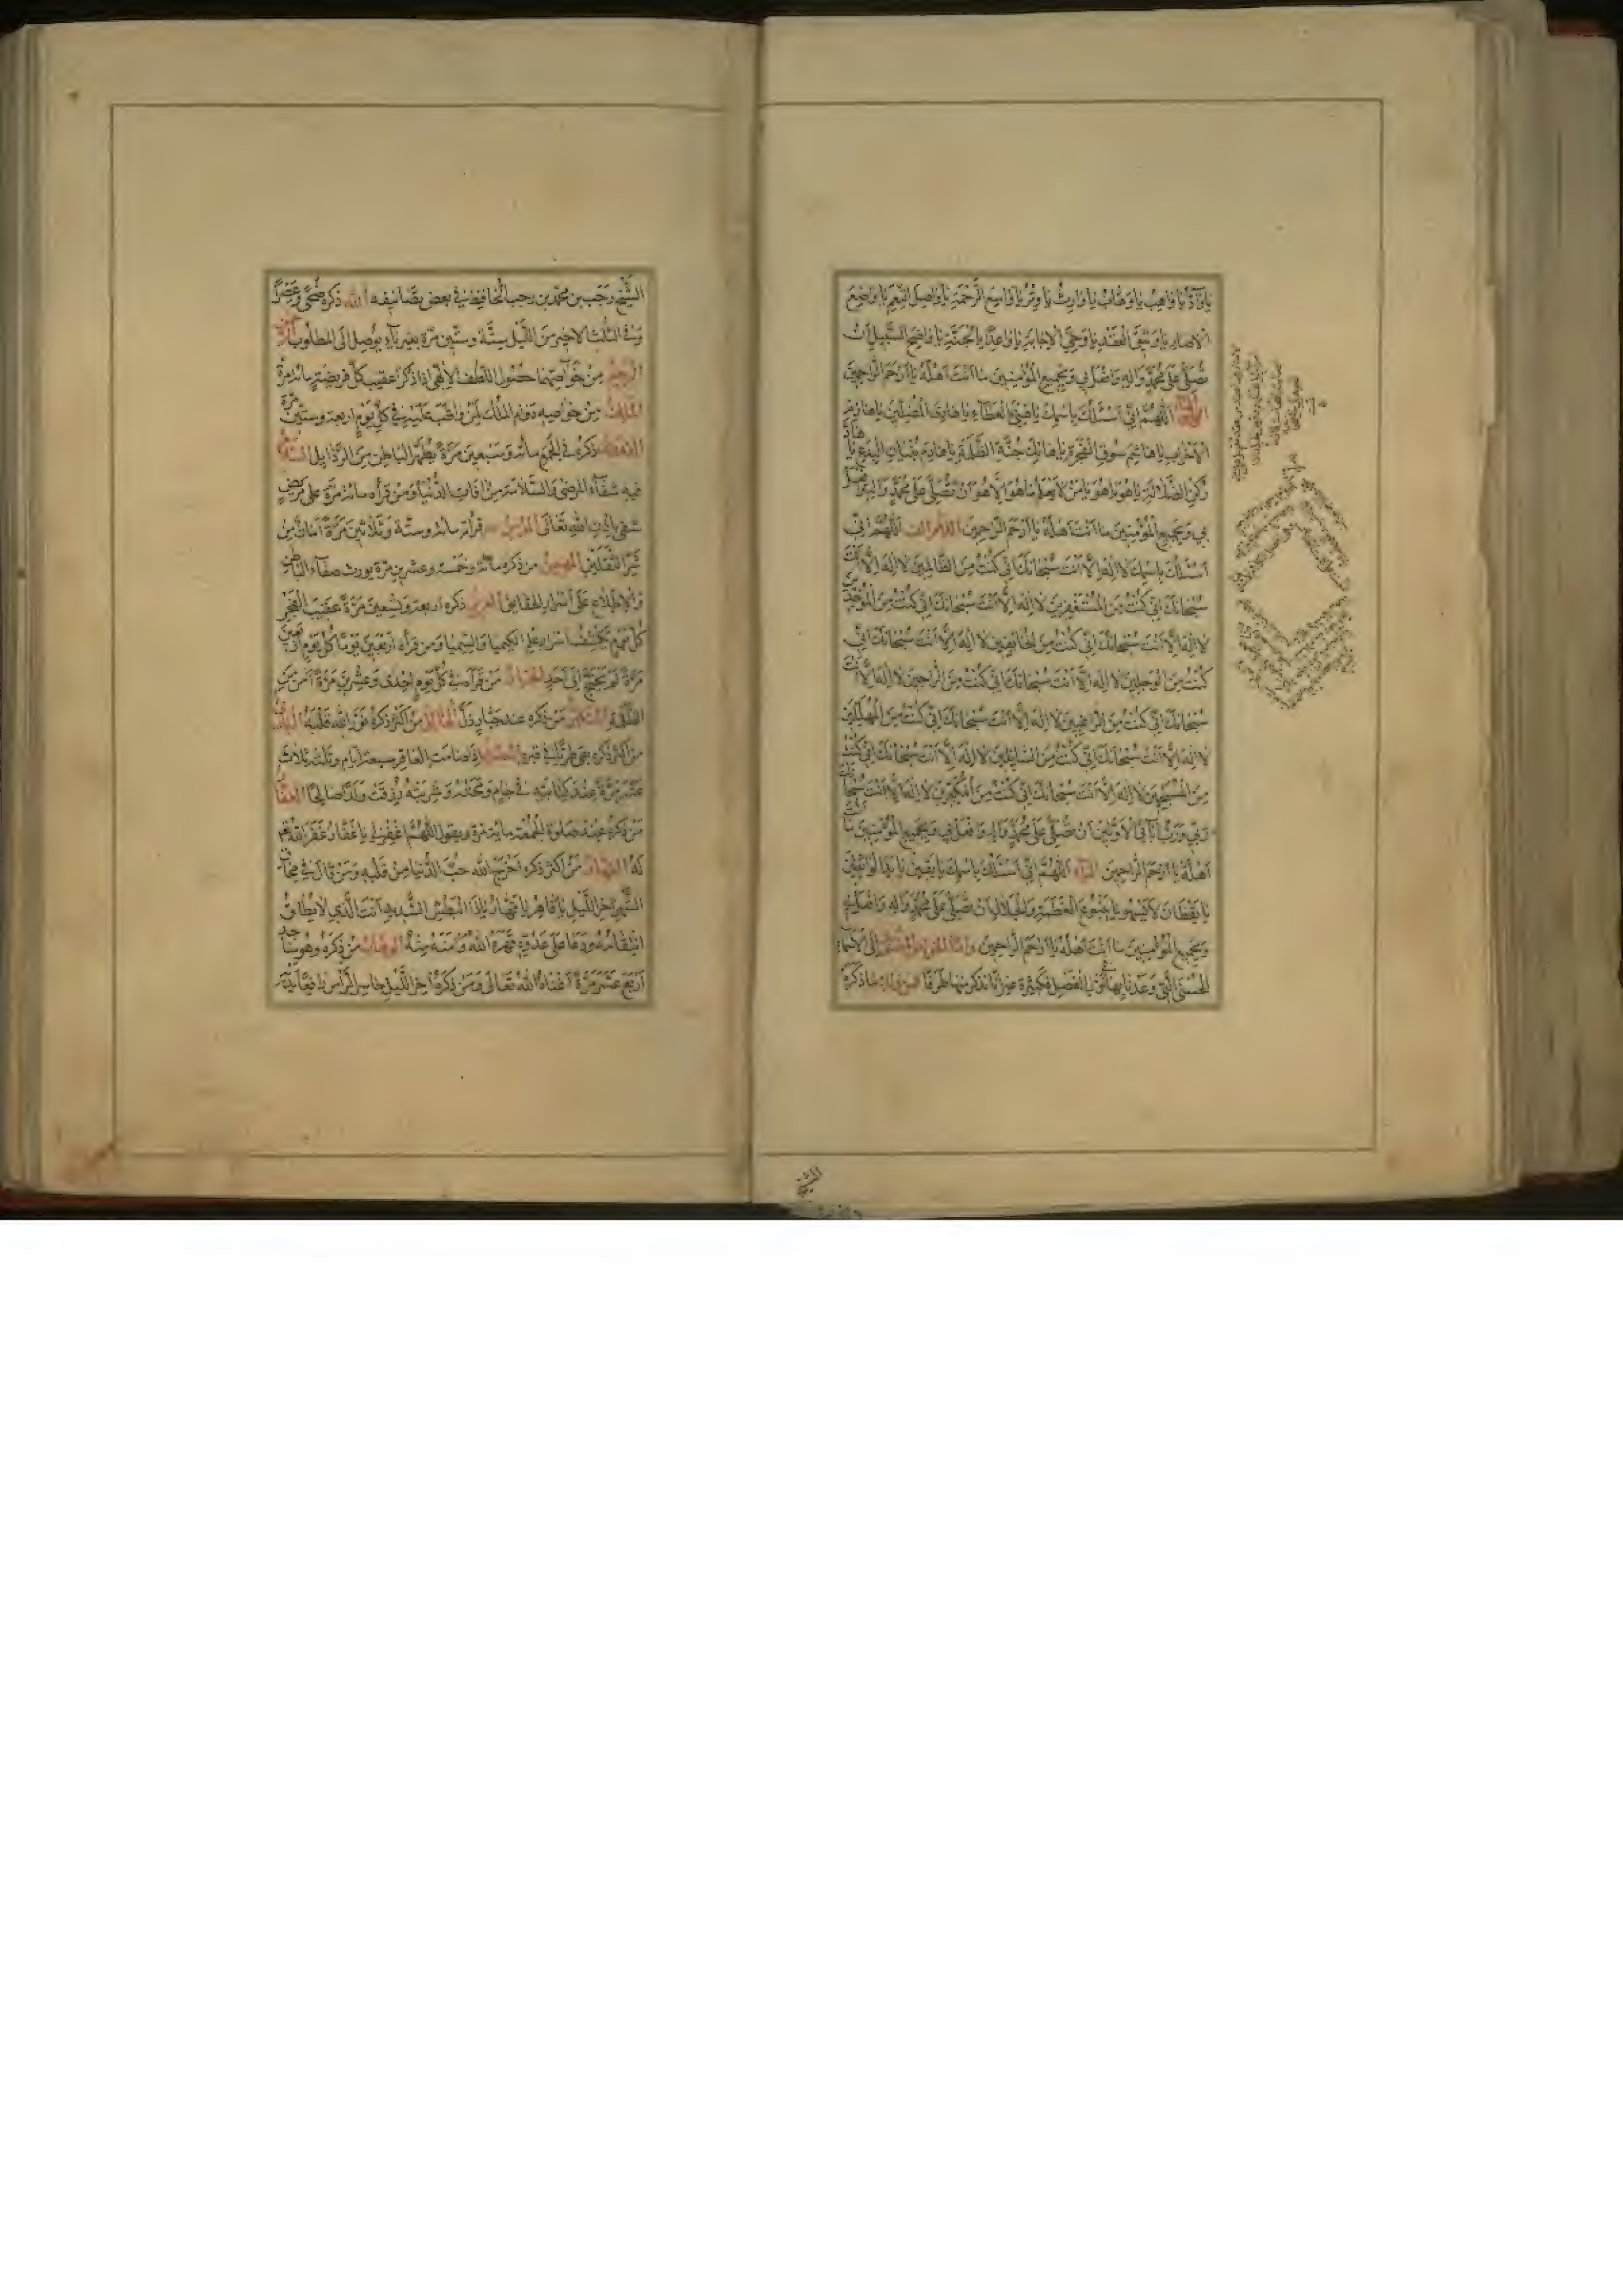 يا وادّ يا واهب يا وهّاب يا وارث يا وتر يا واسع الرّحمة يا واصل النّعم يا واضع
الاصار يا وثيق العقد يا وحيّ الاجابة يا واعدا بالجنّة يا واضح السّبيل ان
تصلّي على محمّد واله وافعل بي وبجميع المؤمنين ما انت اهله يا ارحم الرّاحمين
اللّهمّ انّي اسئلك باسمك يا هنيّ العطاء يا هادي المضلّين يا هازم
الاحزاب يا هاشم سوق الفجرة يا هاتك جنّة الظّلمة يا هادم بنيان البدع يا هادّ
ركن الضّلالة يا هو يا هو يا من لا يعلم ما هو الّا هو ان تصلّي على محمّد واله وافعل
بي وبجميع المؤمنين ما انت اهله يا ارحم الرّاحمين اللام الف اللّهمّ انّي
اسئلك باسمك لا اله الّا انت سبحانك انّي كنت من الظّالمين لا اله الّا انت
سبحانك انّي كنت من المستغفرين لا اله الّا انت سبحانك انّي كنت من الموحّدين
لا اله الّا انت سبحانك انّي كنت من الخائفين لا اله الّا انت سبحانك انّي
كنت من الوجلين لا اله الّا انت سبحانك انّي كنت من الرّاجين لا اله الّا انت
سبحانك انّي كنت من الرّاغبين لا اله الّا انت سبحانك انّي كنت من المهلّلين
لا اله الّا انت سبحانك انّي كنت من السّائلين لا اله الّا انت سبحانك انّي كنت
من المسبّحين لا اله الّا انت سبحانك انّي كنت من المكبّرين لا اله الّا انت سبحانك
ربّي وربّ ابائي الاوّلين ان تصلّي على محمّد واله وافعل بي وبجميع المؤمنين ما انت
اهله يا ارحم الرّاحمين الياء اللّهمّ انّي اسئلك باسمك يا يقين يا يد الواثقين
يا يقظان لا يسهو يا ينبوع العظمة والجلال ان تصلّي على محمّد واله وافعل بي
وبجميع المؤمنين ما انت اهله يا ارحم الرّاحمين الاسماء
الحسنى الّتي وعدنا بها في اوّل الفصل فكثيرة غير انّا نذكر منها طرفا ما ذكره
الشّيخ
الشّيخ رجب بن محمّد بن رجب الحافظ في بعض تصانيفه الله ذكره ضحى وعصرا
وفي الثّلث الاخير من اللّيل ستّة وستّين مرّة بغير ياء يوصل الى المطلوب
الرّحيم من خواصّهما حصول اللّطف الالهي اذا ذكرا عقيب كلّ فريضة مائة مرّة
الملك من خواصه دوام الملك لمن واظب عليه في كلّ يوم اربعة وستّين مرّة
القدّوس ذكره في الجمع مائة وسبعين مرّة يطهّر الباطن من الرّذايل السّلام
فيه شفاء المرضى والسّلامة من افات الدّنيا ومن قراه مائة مرّة على مريض
شفي باذن الله تعالى المؤمن قرأته مائة وستّة وثلاثين مرّة امان من
شرّ الثّقلين المهيمن من ذكره مائة وخمسة وعشرين مرّة يورث صفاء الباطن
والاطّلاع على اسرار الحقائق العزيز ذكره اربعة وتسعين مرّة عقيب الفجر
كلّ يوم يكشف اسرار علم الكيميا والسّيميا ومن قرأه اربعين يوما كلّ يوم اربعين
مرّة لم يحتج الى احد الجبّار من قرأه في كلّ يوم احدى وعشرين مرّة امن من
الظّلمة المتكبّر من ذكره عند جبّار ذلّ الخالق من اكثر ذكره نوّر الله قلبه
من اكثر ذكره لم يبل في قبره المصوّر اذا صامت العاقر سبعة ايام وتلته ثلاث
عشرة مرّة عند كتابته في جام ومحته وشربته رزقت ولدا صالحا الغفّار
من ذكره عند صلوة الجمعة مائة مرّة ويقول اللّهمّ اغفر لي يا غفّار غفر الله
له القهّار من اكثر ذكره اخرج الله حبّ الدّنيا من قلبه ومن قال في محاق
الشّهر اخر اللّيل يا قاهر يا قهّار يا ذا البطش الشّديد انت الّذي لا يطاق
انتقامه ودعا على عدوّه قهره الله وامنه منه الوهّاب من ذكره وهو ساجد
اربع عشرة مرّة اغناه الله تعالى ومن ذكره اخر اللّيل حاسر الرّاس رافعا يديه